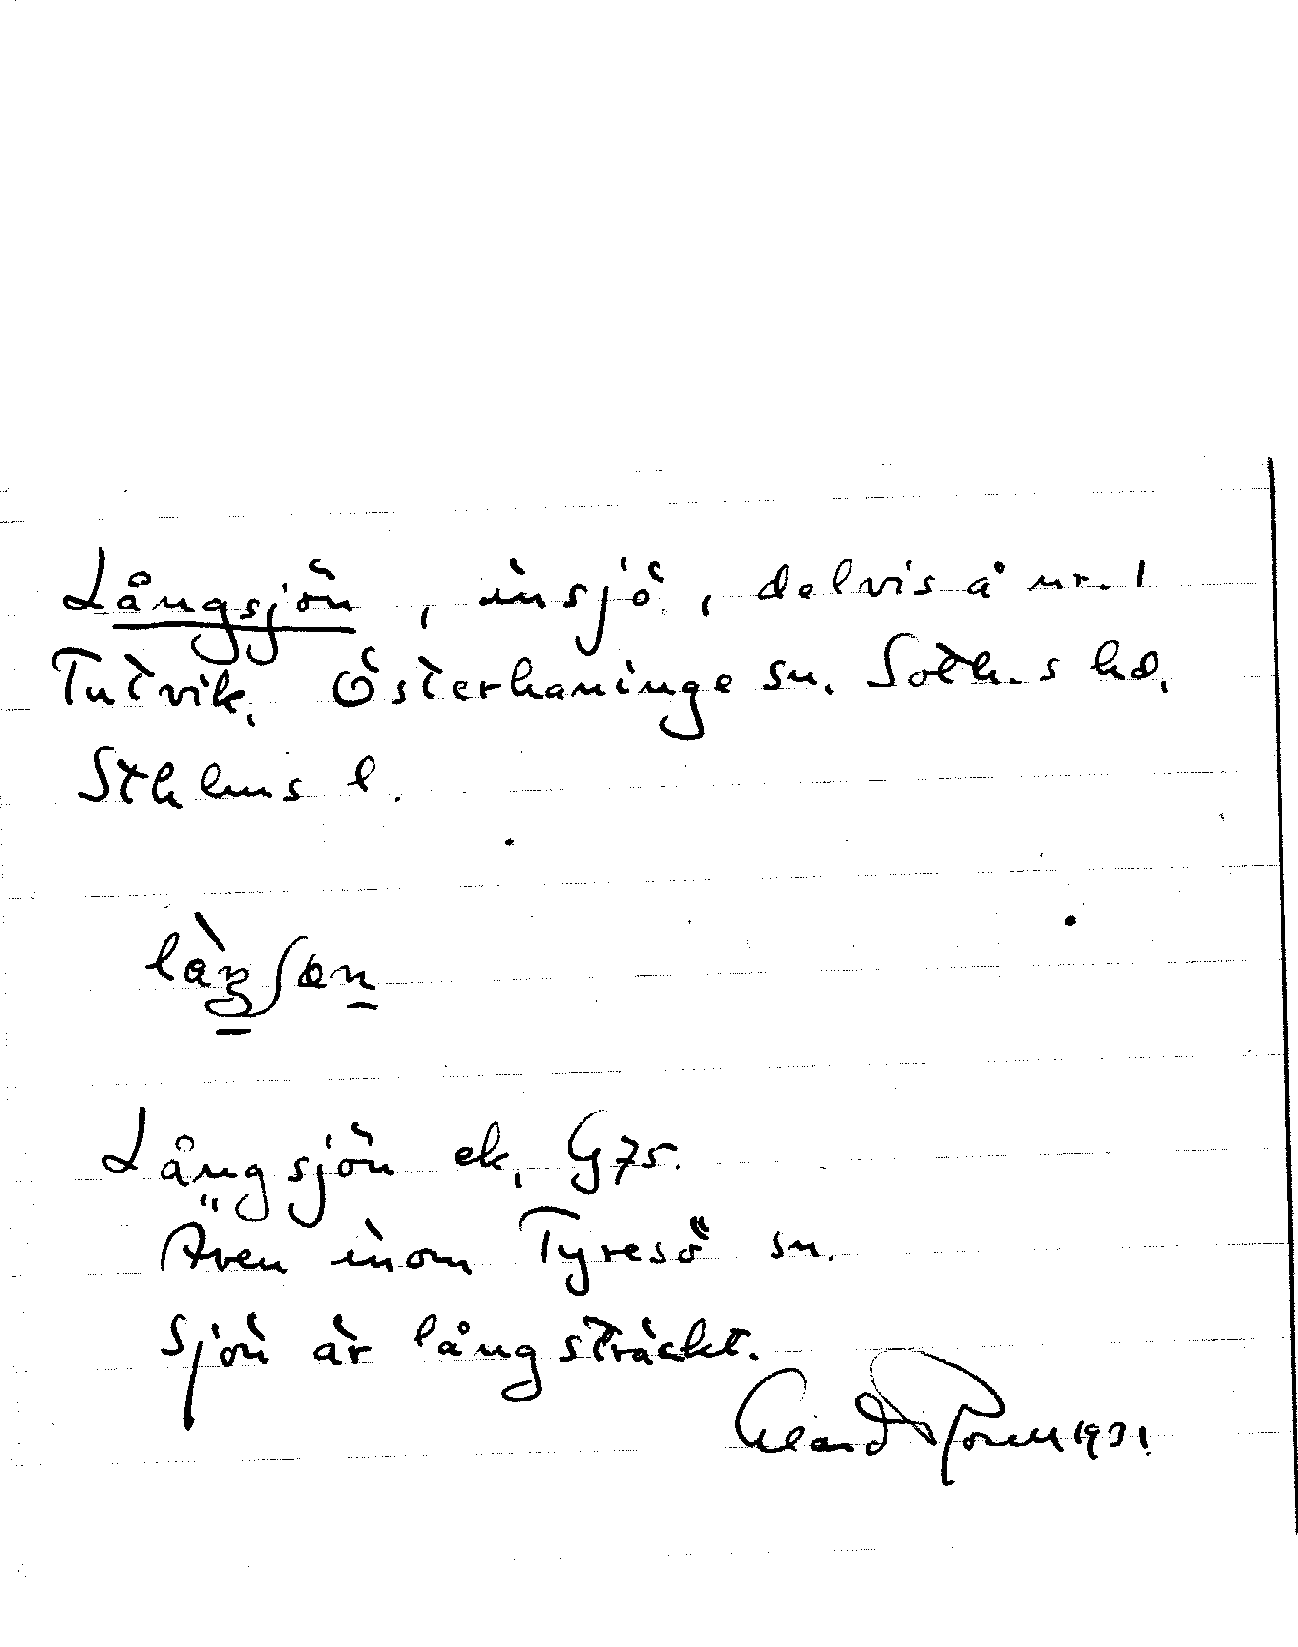 Långsjön, insjö, delvis å nr. 1
Tutvik, Österhaninge sn. Soth.s hd,
Sthlms l.
Långsjön ek, G75.
Även inom Tyresö sn.
Sjön är långsträckt.
1931.